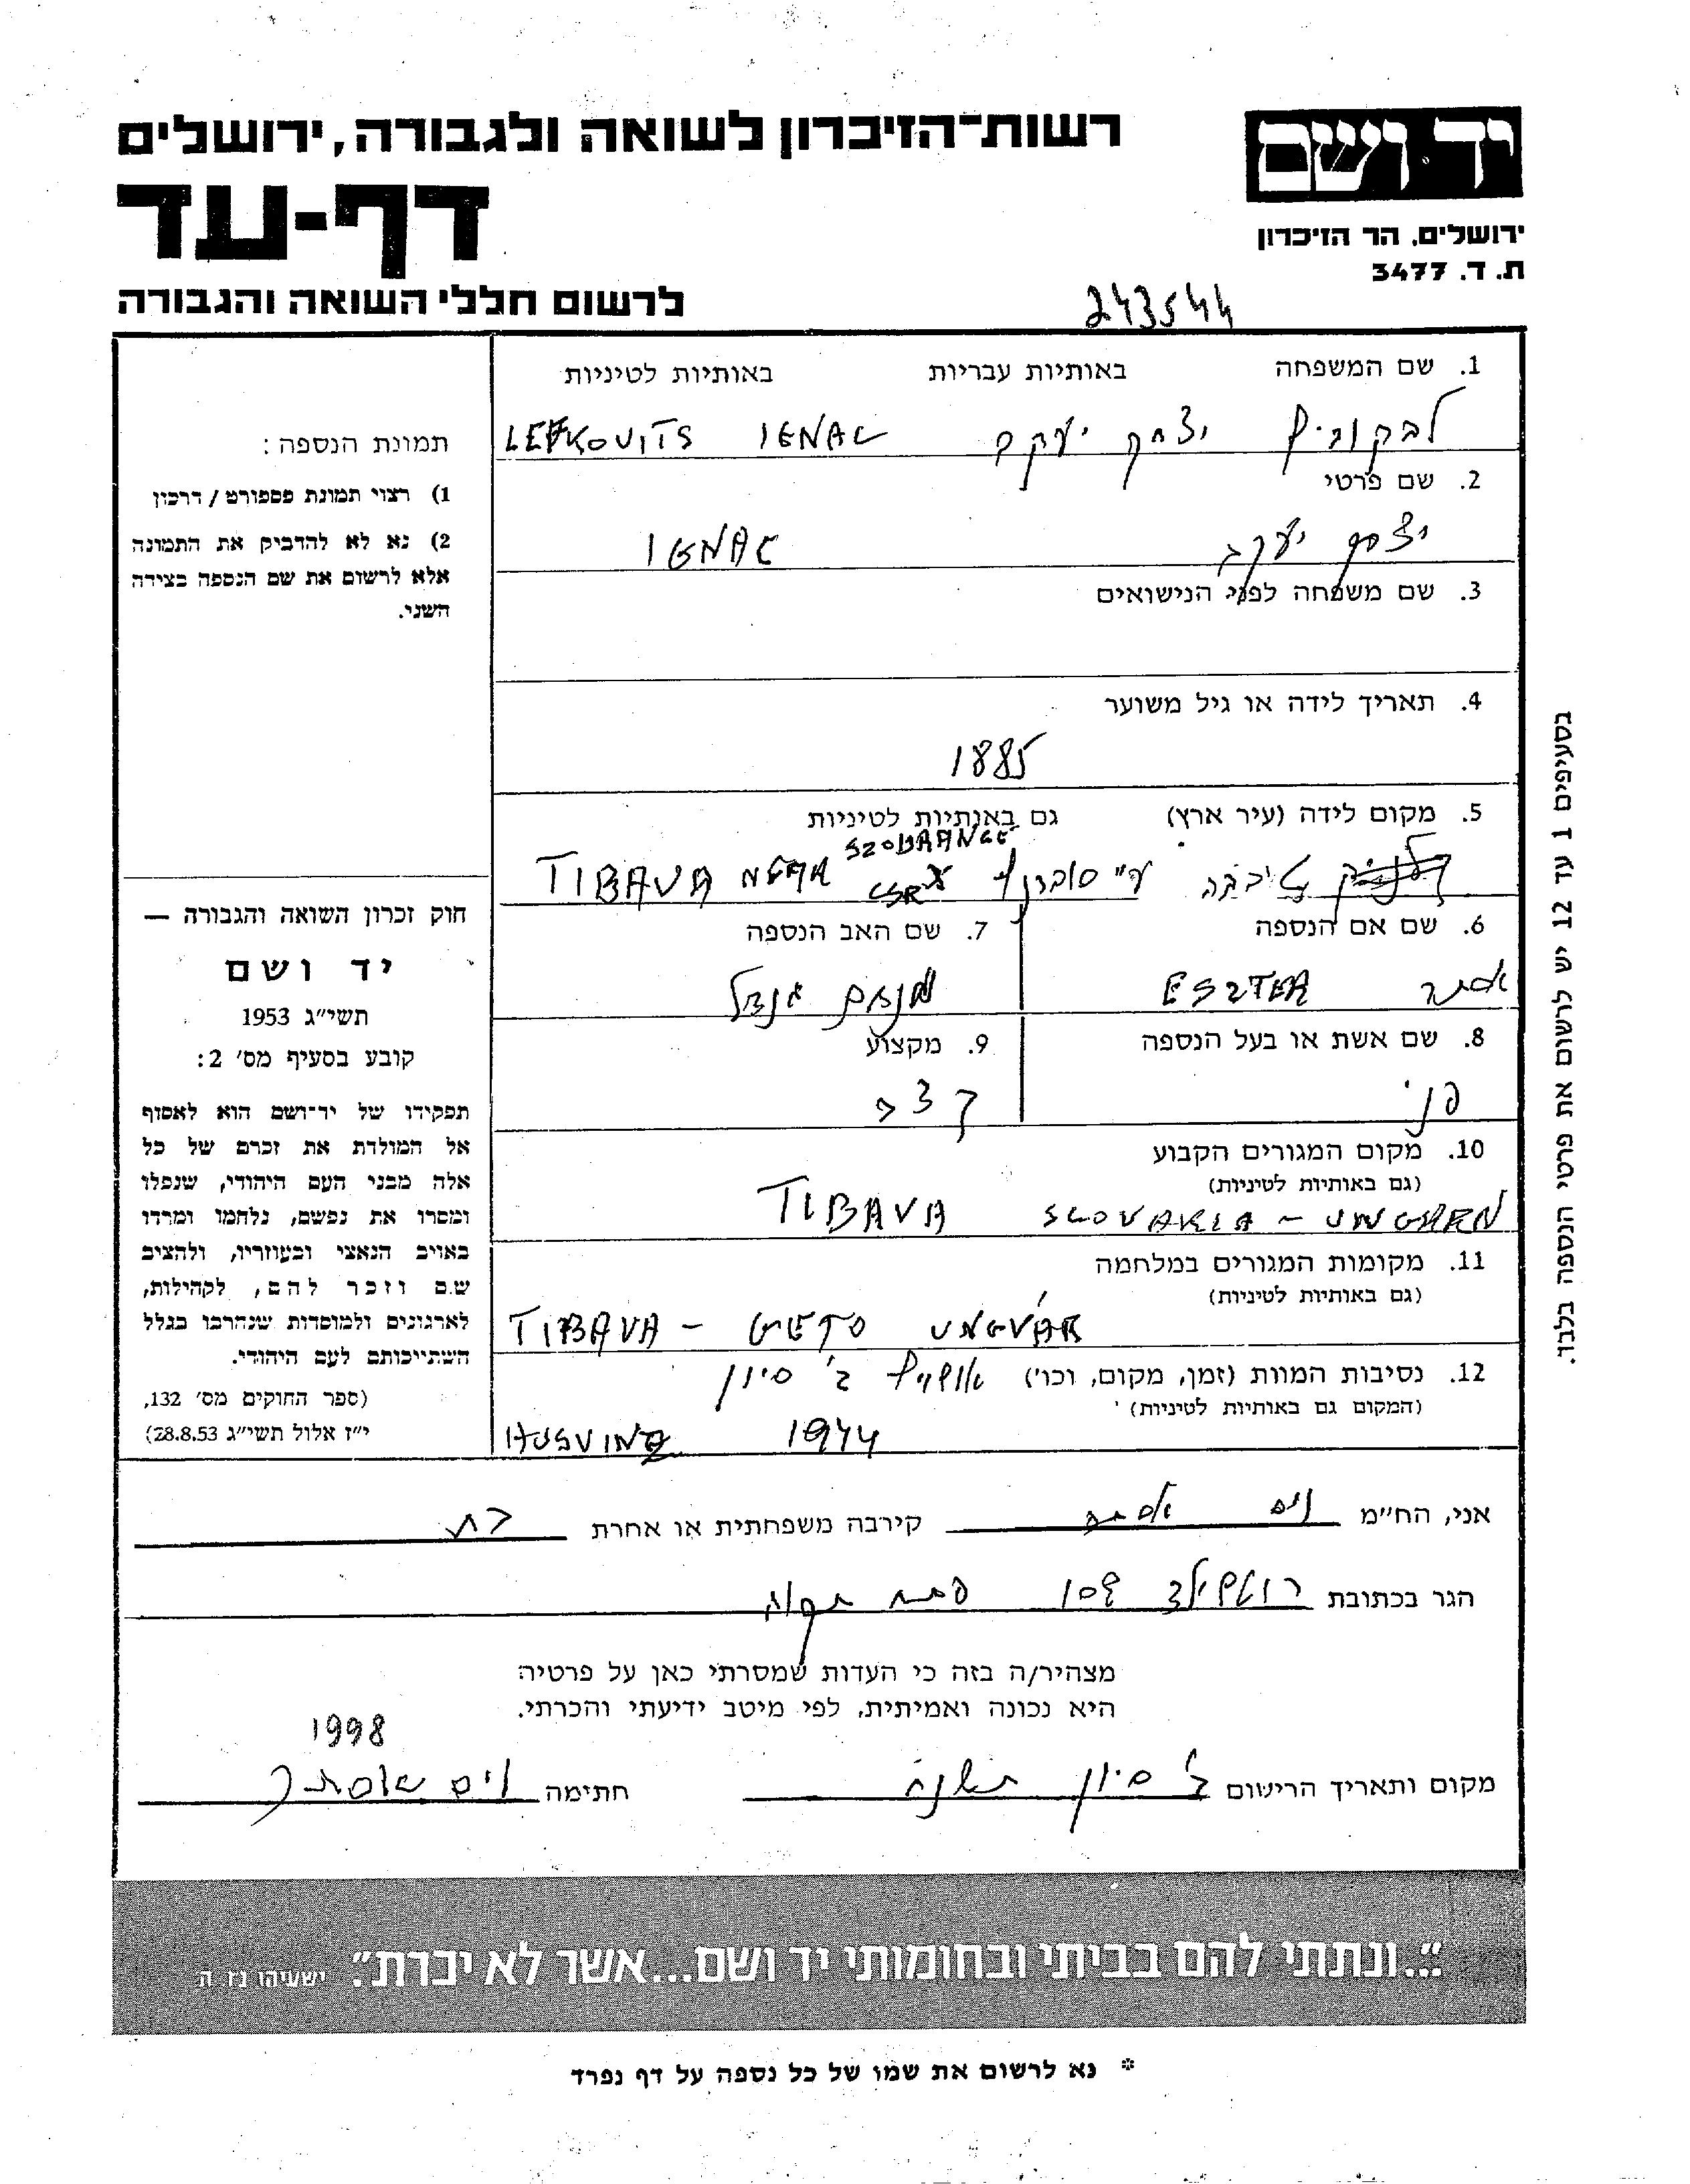 יד ושם
רשות־הזיכרון לשואה ולגבורה, ירושלים
דף-עד
ירושלים, הר הזיכרון
ת. ד. 3477
לרשום חללי השואה והגבורה
243544
1. שם המשפחה באותיות עבריות באותיות לטיניות
לבקוביץ יצחק יעקב LEFKOVITS IGNAC
2. שם פרטי
יצחק יעקב IGNAC
3. שם משפחה לפני הנישואים
4. תאריך לידה או גיל משוער
1885
5. מקום לידה (עיר ארץ) גם באותיות לטיניות
SZOBRANCE
טיבבה ע"י סוברנץ TIBAVA NEAR
6. שם אם הנספה
אסתר ESZTER
7. שם האב הנספה
מנחם מנדל
8. שם אשת או בעל הנספה
פני
9. מקצוע
קצב
10. מקום המגורים הקבוע
(גם באותיות לטיניות)
TIBAVA SLOVAKIA –
11. מקומות המגורים במלחמה
(גם באותיות לטיניות)
TIBAVA – GETTO UNGVÁR
12. נסיבות המוות (זמן, מקום, וכו') אושויץ ב' סיון
(המקום גם באותיות לטיניות)
1944
תמונת הנספה:
1) רצוי תמונת פספורט / דרכון
2) נא לא להדביק את התמונה
אלא לרשום את שם הנספה בצידה
השני.
חוק זכרון השואה והגבורה —
יד ושם
תשי״ג 1953
קובע בסעיף מס׳ 2:
תפקידו של יד־ושם הוא לאסוף
אל המולדת את זכרם של כל
אלה מבני העם היהודי, שנפלו
ומסרו את נפשם, נלחמו ומרדו
באויב הנאצי ובעוזריו, ולהציב
שם וזכר להם, לקהילות,
לארגונים ולמוסדות שנחרבו בגלל
השתייכותם לעם היהודי.
(ספר החוקים מס׳ 132,
י״ז אלול תשי״ג 28.8.53)
בסעיפים 1 עד 12 יש לרשום את פרטי הנספה בלבד.
אני, הח״מ וים אסתר קירבה משפחתית או אחרת בת
הגר בכתובת רוטשילד פתח תקוה
מצהיר/ה בזה כי העדות שמסרתי כאן על פרטיה
היא נכונה ואמיתית, לפי מיטב ידיעתי והכרתי.
1998
מקום ותאריך הרישום ב' סיון תשנח חתימה וים אסתר
״...ונתתי להם בביתי ובחומותי יד ושם...אשר לא יכרת״. ישעיהו נז ה
* נא לרשום את שמו של כל נספה על דף נפרד